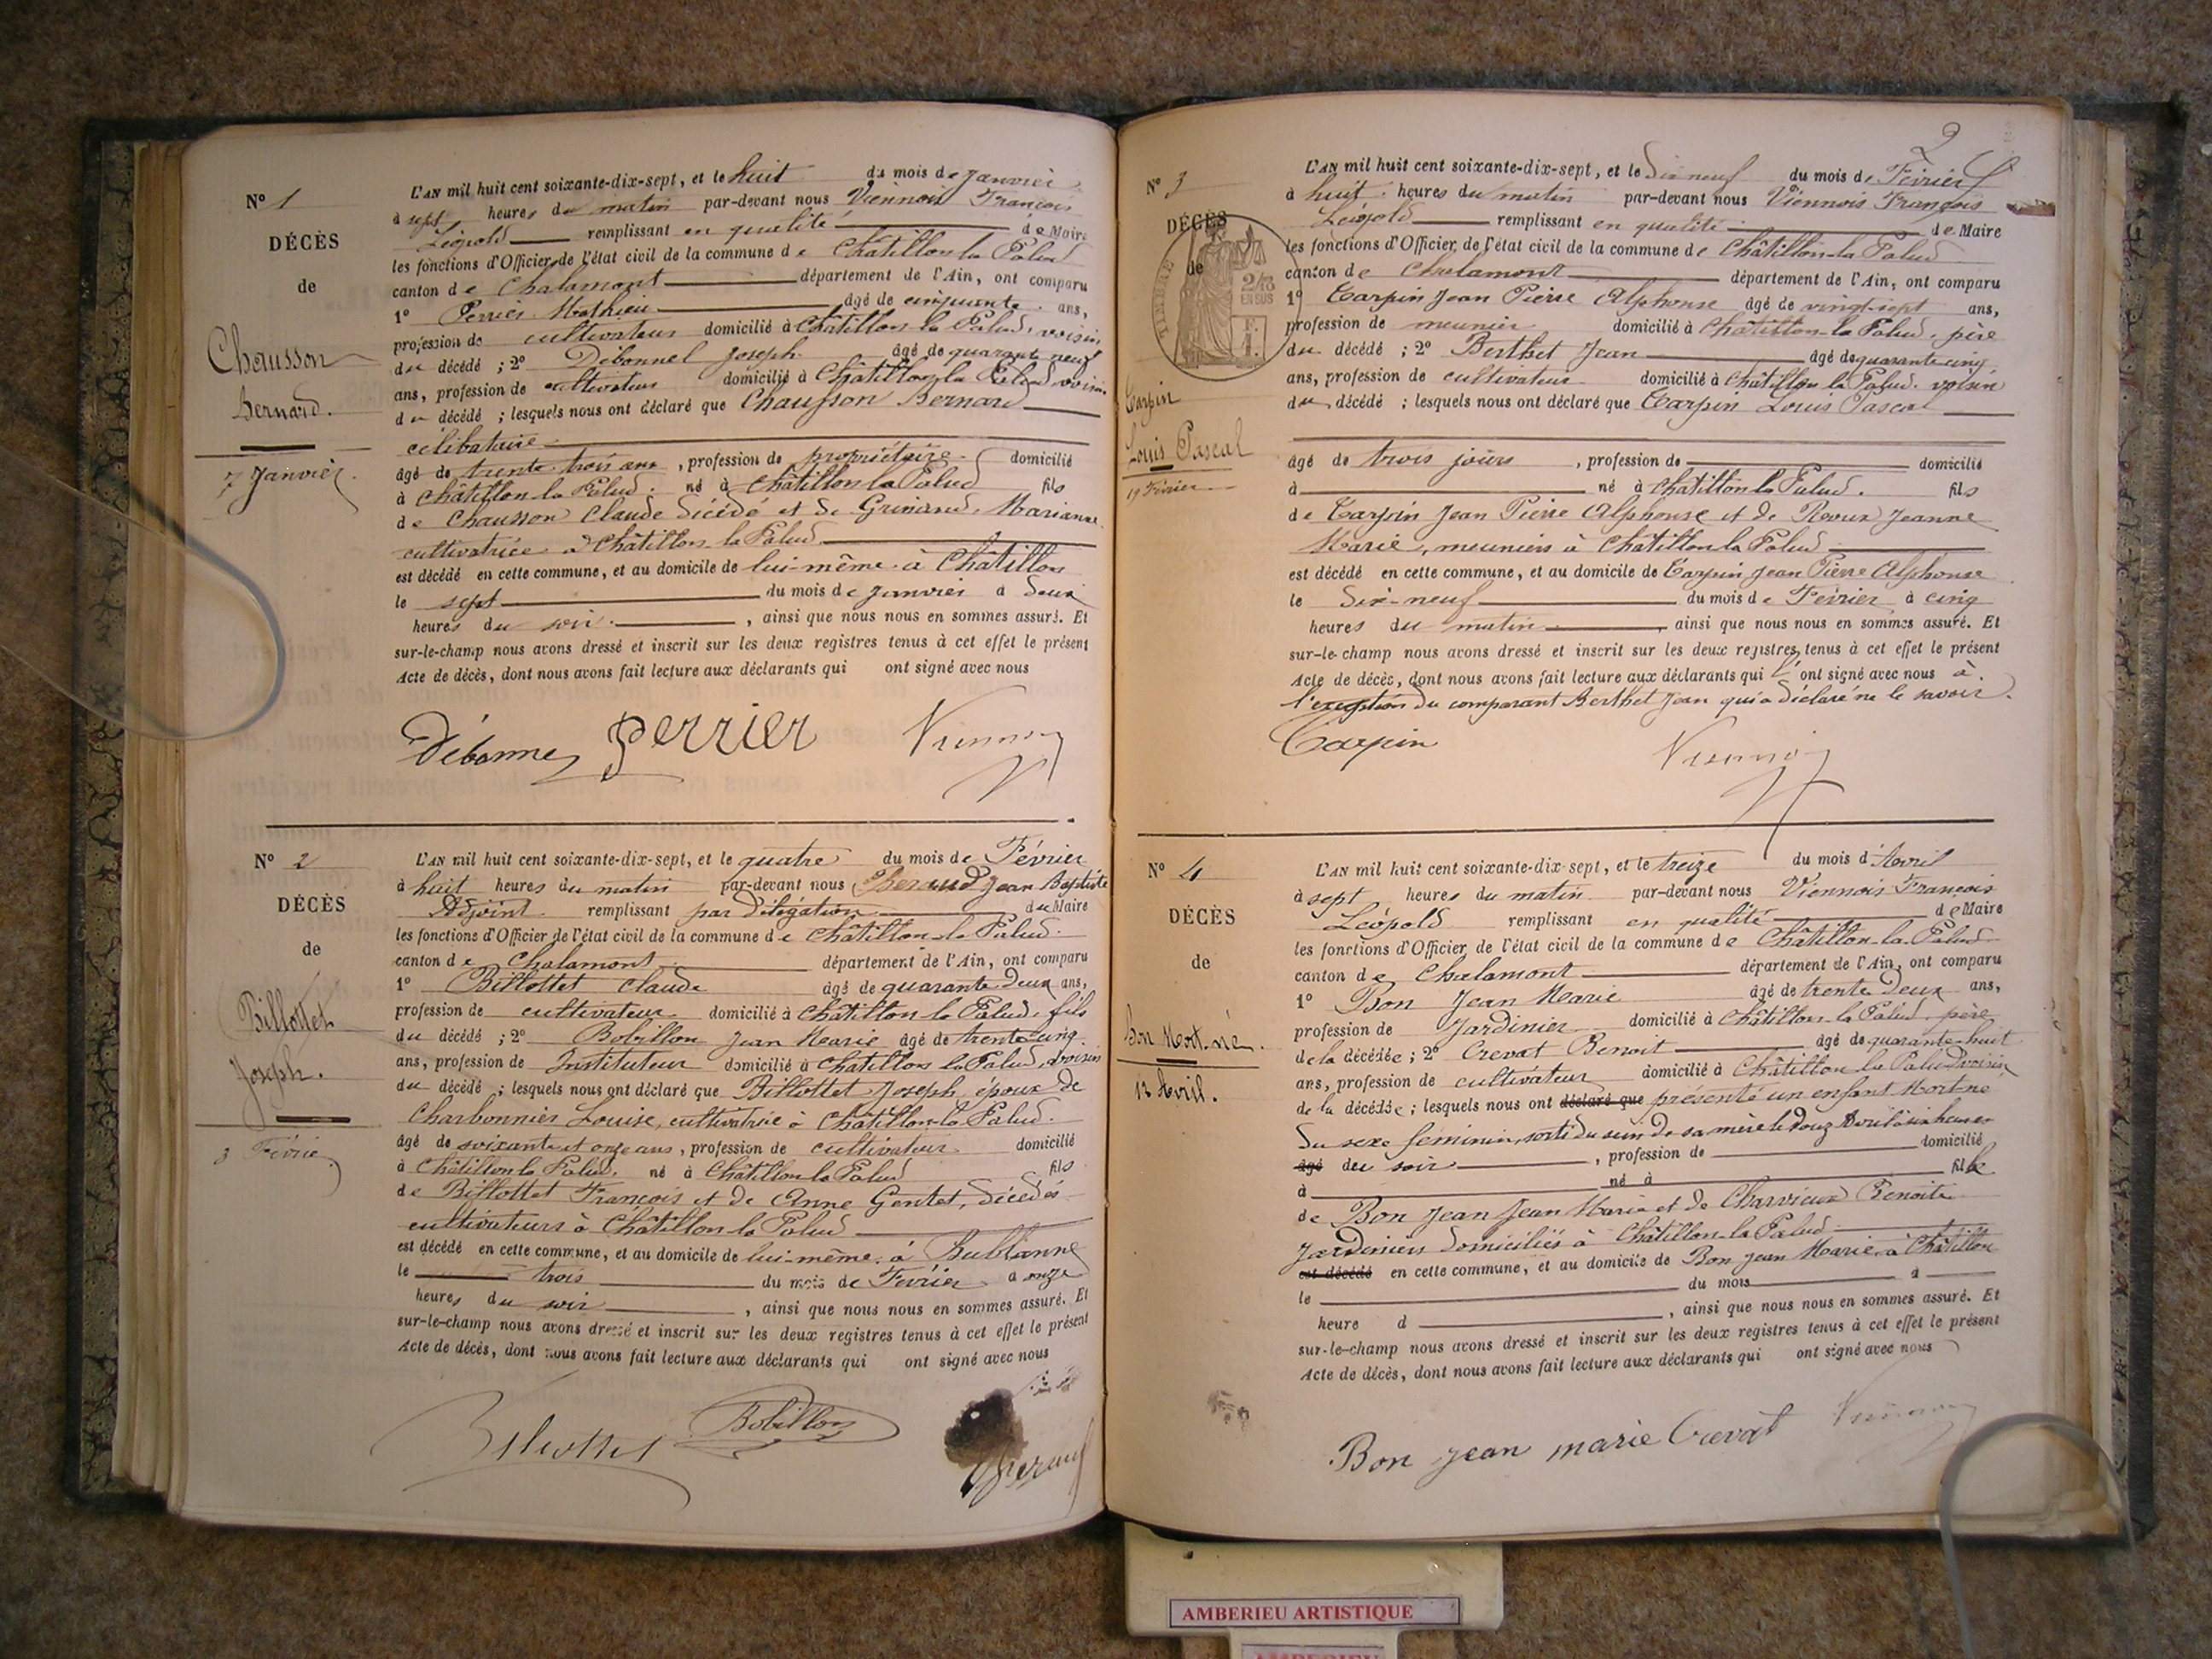 N° 1
DÉCÈS
de
Chausson
Bernard.
7 Janvier.
L'AN mil huit cent soixante-dix-sept, et le huit du mois de Janvier
à sept heures du matin par-devant nous Viennois François
Léopold remplissant en qualité de Maire
les fonctions d'Officier de l'état civil de la commune de Châtillon la Palud
canton de Chalamont département de l'Ain, ont comparu
1° Perrier Mathieu âgé de cinquante ans,
profession de cultivateur domicilié à Châtillon la Palud, voisin
du décédé ; 2° Débonnel Joseph âgé de quarante neuf
ans, profession de cultivateur domicilié à Châtillon la Palud voisin
du décédé ; lesquels nous ont déclaré que Chausson Bernard
célibataire
âgé de trente trois ans, profession de propriétaire domicilié
à Châtillon la Palud. né à Châtillon la Palud fils
de Chausson Claude décédé et de Marianne
cultivatrice à Châtillon la Palud
est décédé en cette commune, et au domicile de lui-même à Châtillon
le sept du mois de Janvier à deux
heures du soir, ainsi que nous nous en sommes assuré. Et
sur-le-champ nous avons dressé et inscrit sur les deux registres tenus à cet effet le présent
Acte de décès, dont nous avons fait lecture aux déclarants qui ont signé avec nous
perrier
N° 2
DÉCÈS
de
Billottet
Joseph.
3 Février
L'AN mil huit cent soixante-dix-sept, et le quatre du mois de Février
à huit heures du matin par-devant nous Jean Baptiste
Adjoint remplissant par délégation du Maire
les fonctions d'Officier de l'état civil de la commune de Châtillon la Palud
canton de Chalamont département de l'Ain, ont comparu
1° Billottet Claude âgé de quarante deux ans,
profession de cultivateur domicilié à Châtillon la Palud, fils
du décédé ; 2° Bobillon Jean Marie âgé de trente cinq
ans, profession de Instituteur domicilié à Châtillon la Palud, voisin
du décédé ; lesquels nous ont déclaré que Billottet Joseph, époux de
Charbonnier Louise, cultivatrice à Châtillon la Palud.
âgé de soixante et onze ans, profession de cultivateur domicilié
à Châtillon la Palud, né à Châtillon la Palud fils
de Billottet François et de Anne Gentet, décédés
cultivateurs à Châtillon la Palud
est décédé en cette commune, et au domicile de lui-même à
le trois du mois de Février à onze
heures du soir, ainsi que nous nous en sommes assuré. Et
sur-le-champ nous avons dressé et inscrit sur les deux registres tenus à cet effet le présent
Acte de décès, dont nous avons fait lecture aux déclarants qui ont signé avec nous
Bobillon
2
N° 3
DÉCÈS
de
TIMBRE
2/10
EN SUS
Carpin
Louis Pascal
19 Février
L'AN mil huit cent soixante-dix-sept, et le dix neuf du mois de Février
à huit heures du matin par-devant nous Viennois François
Léopold remplissant en qualité de Maire
les fonctions d'Officier de l'état civil de la commune de Châtillon-la Palud
canton de Chalamont département de l'Ain, ont comparu
1° Carpin Jean Pierre Alphonse âgé de vingt-sept ans,
profession de meunier domicilié à Châtillon la Palud, père
du décédé ; 2° Berthet Jean âgé de quarante cinq
ans, profession de cultivateur domicilié à Châtillon la Palud. voisin
du décédé ; lesquels nous ont déclaré que Carpin Louis Pascal
âgé de trois jours, profession de domicilié
à né à Châtillon la Palud. fils
de Carpin Jean Pierre Alphonse et de Roux Jeanne
Marie, meuniers à Châtillon la Palud
est décédé en cette commune, et au domicile de Carpin Jean Pierre Alphonse
le dix-neuf du mois de Février à cinq
heures du matin, ainsi que nous nous en sommes assuré. Et
sur-le-champ nous avons dressé et inscrit sur les deux registres tenus à cet effet le présent
Acte de décès, dont nous avons fait lecture aux déclarants qui l'ont signé avec nous à
l'exception du comparant Berthet Jean qui a déclaré ne le savoir.
Carpin
N° 4
DÉCÈS
de
Bon Mort-né.
12 Avril.
L'AN mil huit cent soixante-dix-sept, et le treize du mois d'Avril
à sept heures du matin par-devant nous Viennois François
Léopold remplissant en qualité de Maire
les fonctions d'Officier de l'état civil de la commune de Châtillon-la-Palud
canton de Chalamont département de l'Ain, ont comparu
1° Bon Jean Marie âgé de trente deux ans,
profession de Jardinier domicilié à Châtillon-la Palud, père
de la décédée ; 2° Crevat Benoit âgé de quarante-huit
ans, profession de cultivateur domicilié à Châtillon la Palud voisin
de la décédée ; lesquels nous ont déclaré que présenté un enfant Mort-né
du sexe féminin, sorti du sein de sa mère le douze Avril à six heures
âgé du soir, profession de domicilié
à né à fille
de Bon Jean Jean Marie et de Charvieux Benoite
Jardiniers domiciliés à Châtillon-la-Palud
est décédé en cette commune, et au domicile de Bon Jean Marie à Châtillon
le du mois à
heure d, ainsi que nous nous en sommes assuré. Et
sur-le-champ nous avons dressé et inscrit sur les deux registres tenus à cet effet le présent
Acte de décès, dont nous avons fait lecture aux déclarants qui ont signé avec nous
Bon jean marie Crevat
AMBERIEU ARTISTIQUE
AMBERIEU